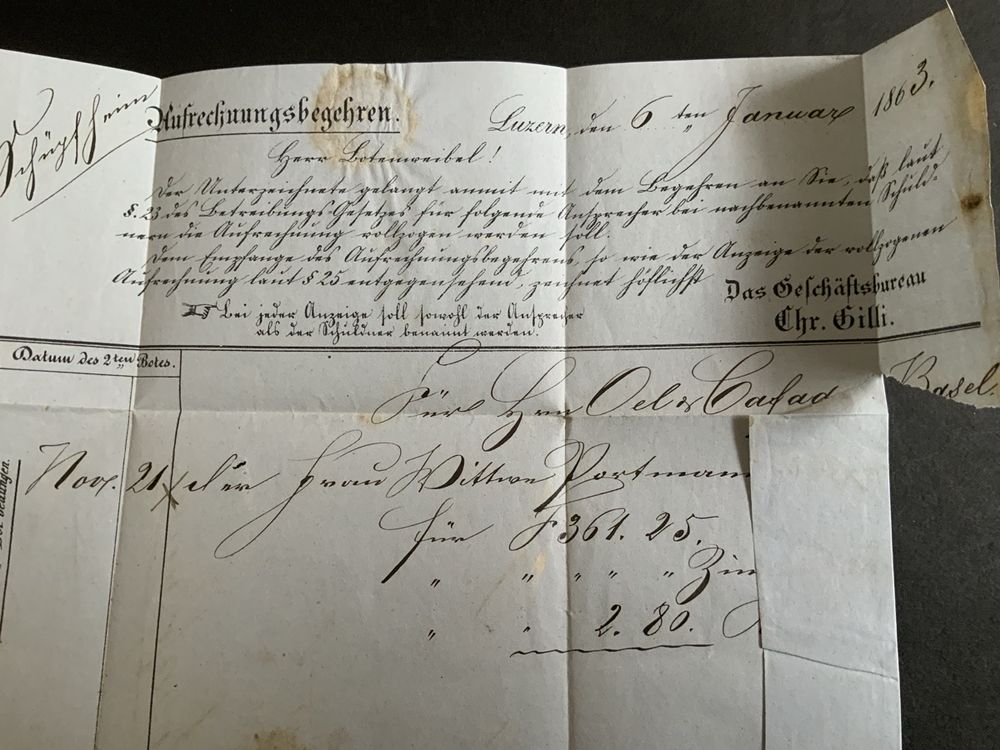 Schüpfheim
Aufrechnungsbegehren.
Luzern, den 6ten Januar 1863.
Herr Botenweibel!
Der Unterzeichnete gelangt anmit mit dem Begehren an Sie, daß laut
§. 23 des Betreibungs-Gesetzes für folgende Ansprecher bei nachbenannten Schuld-
nern die Aufrechnung vollzogen werden soll.
Dem Empfange des Aufrechnungsbegehrens, so wie der Anzeige der vollzogenen
Aufrechnung laut § 25 entgegensehend, zeichnet höflichst
Das Geschäftsbureau
Chr. Gilli.
☞ Bei jeder Anzeige soll sowohl der Ansprecher
als der Schuldner benannt werden.
Datum des 2ten Botes.
Für Hrn Oel & Basel.
Nov. 21 der Frau Wittwe Portmann
für F 361. 25.
" " " " " Zin
" " 2. 80.